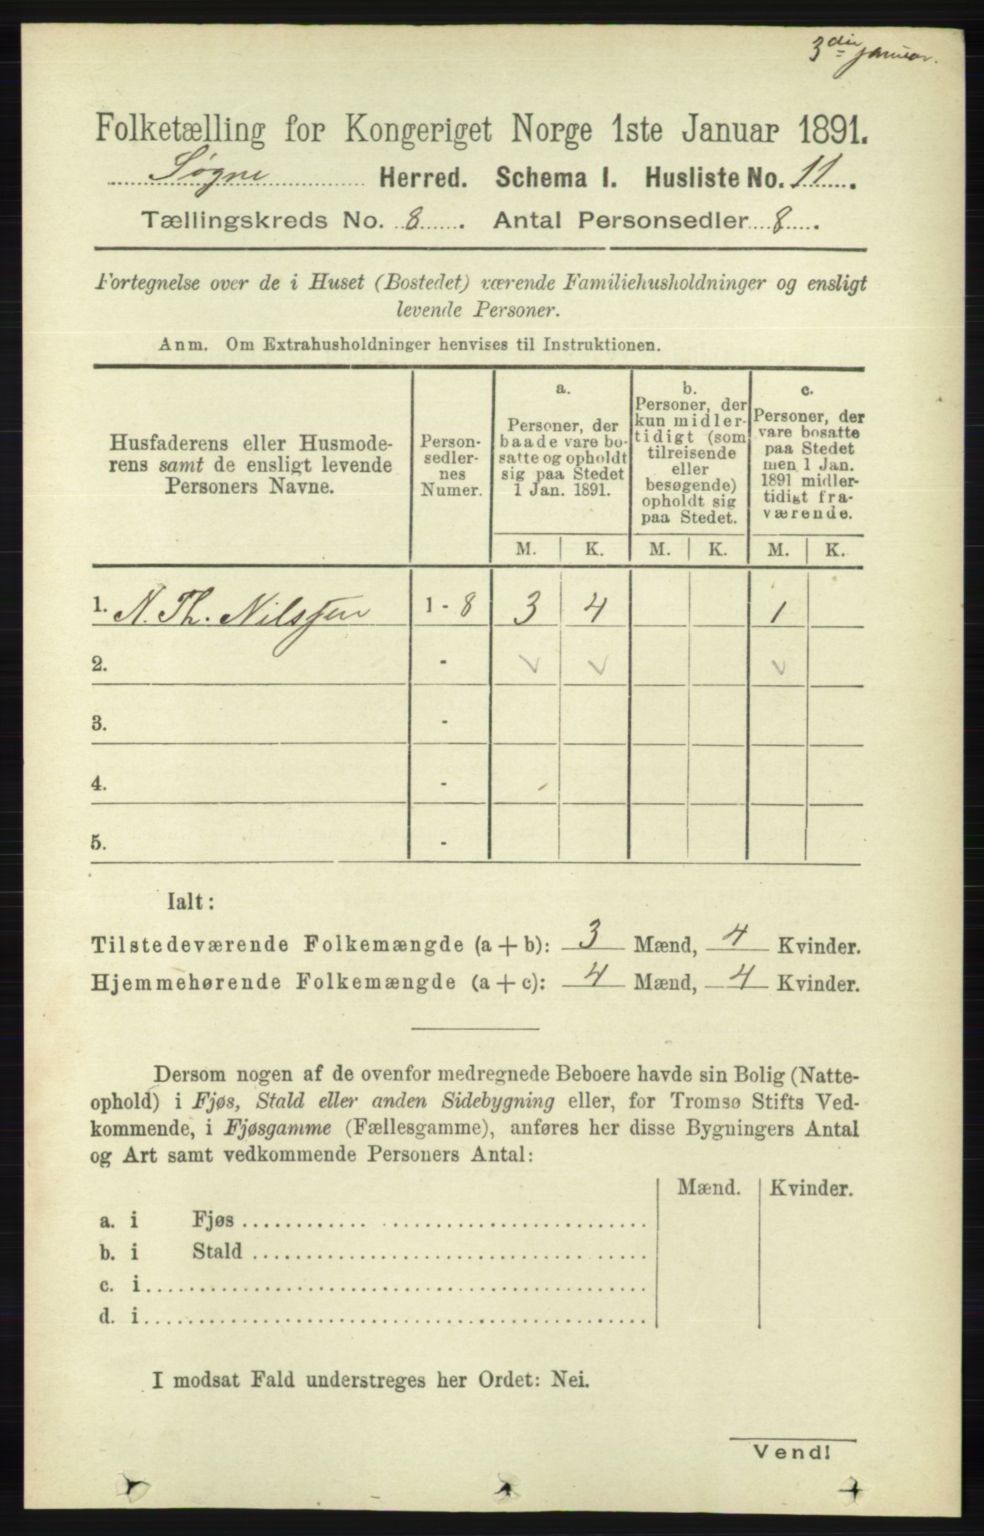 3die Januar.
Folketælling for Kongeriget Norge 1ste Januar 1891.
Søgne Herred. Schema I. Husliste No. 11.
Tællingskreds No. 8. Antal Personsedler 8.
Fortegnelse over de i Huset (Bostedet) værende Familiehusholdninger og ensligt
levende Personer.
Anm. Om Extrahusholdninger henvises til Instruktionen.
Husfaderens eller Husmode-
rens samt de ensligt levende
Personers Navne.
Person-
sedler-
nes
Numer.
a.
Personer, der
baade vare bo-
satte og opholdt
sig paa Stedet
1 Jan. 1891.
b.
Personer, der
kun midler-
tidigt (som
tilreisende
eller
besøgende)
opholdt sig
paa Stedet.
c.
Personer, der
vare bosatte
paa Stedet
men 1 Jan.
1891 midler-
tidigt fra-
værende.
M. K. M. K. M. K.
1. N. Th. Nilssen 1 - 8 3 4 1
2. -
3. -
4. -
5. -
Ialt:
Tilstedeværende Folkemængde (a + b): 3 Mænd, 4 Kvinder.
Hjemmehørende Folkemængde (a + c): 4 Mænd, 4 Kvinder.
Dersom nogen af de ovenfor medregnede Beboere havde sin Bolig (Natte-
ophold) i Fjøs, Stald eller anden Sidebygning eller, for Tromsø Stifts Ved-
kommende, i Fjøsgamme (Fællesgamme), anføres her disse Bygningers Antal
og Art samt vedkommende Personers Antal:
Mænd. Kvinder.
a. i Fjøs
b. i Stald
c. i
d. i
I modsat Fald understreges her Ordet: Nei.
Vend!